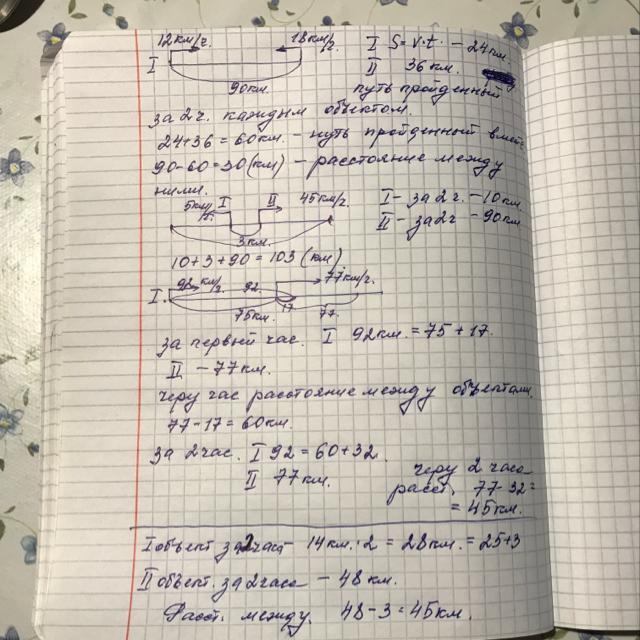 12км/ч. 18км/ч.
I S=v·t. - 24км
I II 36км.
90км. путь пройденный
за 2ч. каждым объектом.
24+36=60км. - путь пройденный
90-60=30(км) - расстояние между
ними.
5км/ч I II 45км/ч. I - за 2ч. - 10км
II - за 2ч - 90км
3км.
10+3+90=103 (км)
км/ч. 92 77км/ч.
I.
75км. 17 77
за первый час. I 92км. = 75+17.
II - 77км.
черу час расстояние между объектами.
77-17=60км.
за 2час. I 92=60+32
II 77км. черу 2 часа
расст. 77-32=
=45км.
I объект за 2часа - 14км.·2=28км.=25+3
II объект. за 2часа - 48км.
Расст. между. 48-3=45км.